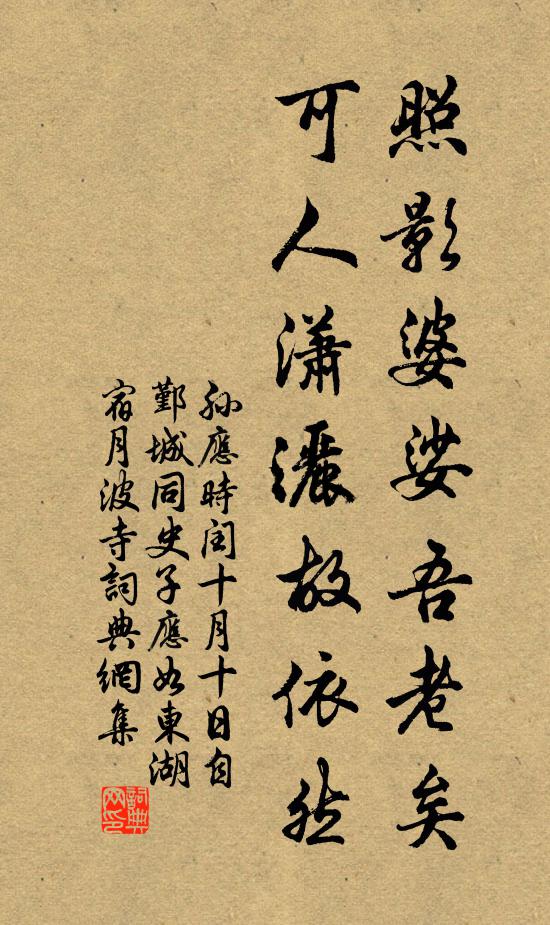 照影婆娑吾老矣
可人瀟灑故依然
孫應時閏十月十日自
鄞城同史子應如東湖
宿月波寺詞典網集
詞典
网印